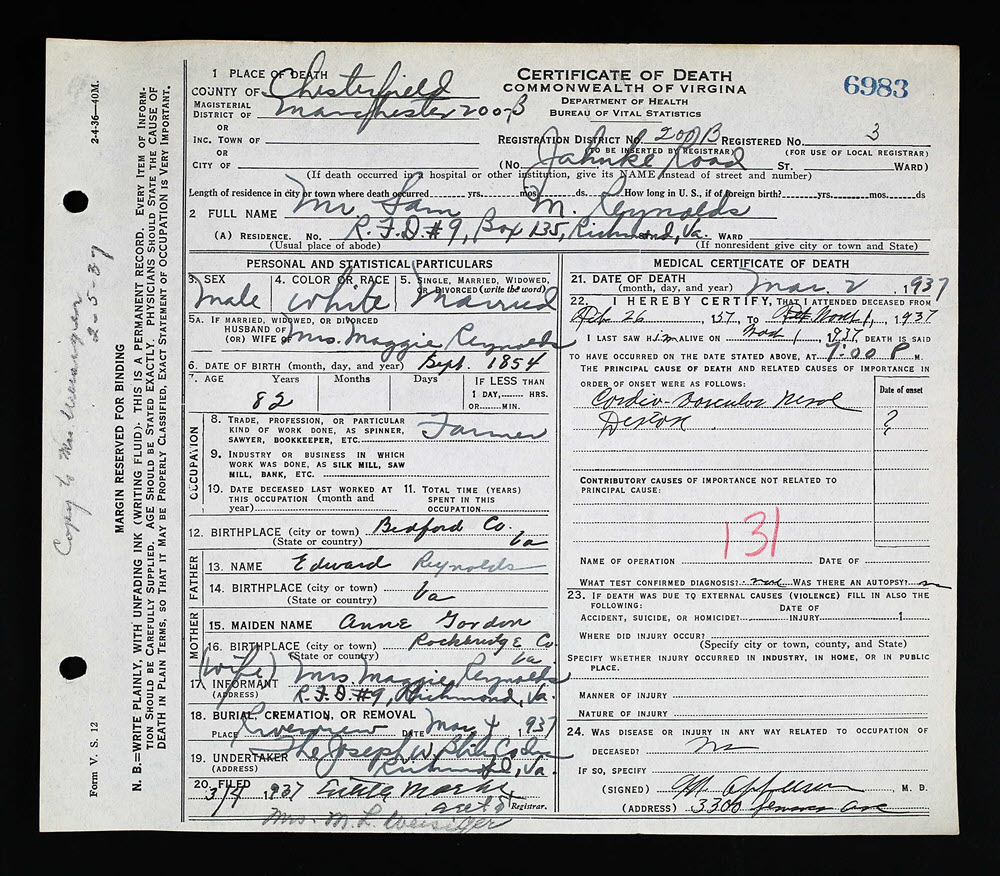 1 PLACE OF DEATH
COUNTY OF Chesterfield
MAGISTERIAL DISTRICT OF Manchester 200-B
OR
INC. TOWN OF
OR
CITY OF
CERTIFICATE OF DEATH
COMMONWEALTH OF VIRGINA
DEPARTMENT OF HEALTH
BUREAU OF VITAL STATISTICS
6983
REGISTRATION DISTRICT NO. 200B REGISTERED NO. 3
(TO BE INSERTED BY REGISTRAR) (FOR USE OF LOCAL REGISTRAR)
(No. Jahnke Road ST. WARD)
(If death occurred in a hospital or other institution, give its NAME instead of street and number)
Length of residence in city or town where death occurred yrs. mos. ds. How long in U. S., if of foreign birth? yrs. mos. ds
2 FULL NAME Mr Sam M. Reynolds
(A) RESIDENCE. No. R.F.D. #9, Box 135, Richmond, Va. WARD
(Usual place of abode) (If nonresident give city or town and State)
PERSONAL AND STATISTICAL PARTICULARS
3. SEX male
4. COLOR OR RACE white
5. SINGLE, MARRIED, WIDOWED, OR DIVORCED (write the word) Married
5A. IF MARRIED, WIDOWED, OR DIVORCED
HUSBAND OF
(OR) WIFE OF Mrs. Maggie Reynolds
6. DATE OF BIRTH (month, day, and year) Sept. 1854
7. AGE Years Months Days IF LESS THAN
82 1 DAY, HRS.
OR MIN.
OCCUPATION
8. TRADE, PROFESSION, OR PARTICULAR
KIND OF WORK DONE, AS SPINNER,
SAWYER, BOOKKEEPER, ETC. Farmer
9. INDUSTRY OR BUSINESS IN WHICH
WORK WAS DONE, AS SILK MILL, SAW
MILL, BANK, ETC.
10. DATE DECEASED LAST WORKED AT
THIS OCCUPATION (month and
year)
11. TOTAL TIME (YEARS)
SPENT IN THIS
OCCUPATION
12. BIRTHPLACE (city or town) Bedford Co.
(State or country) Va
FATHER
13. NAME Edward Reynolds
14. BIRTHPLACE (city or town)
(State or country) Va
MOTHER
15. MAIDEN NAME Anne Gordon
16. BIRTHPLACE (city or town) Rockbridge Co
(State or country) Va
(Wife)
17. INFORMANT Mrs. Maggie Reynolds
(ADDRESS) R.F.D. #9, Richmond, Va.
18. BURIAL, CREMATION, OR REMOVAL
PLACE Riverview DATE Mar 4 1937
19. UNDERTAKER The Joseph W. Bliley Co Inc
(ADDRESS) Richmond, Va.
20. FILED 3/4 1937
Registrar.
Mrs. M. L. Weisiger
MEDICAL CERTIFICATE OF DEATH
21. DATE OF DEATH
(month, day, and year) Mar. 2, 1937
22. I HEREBY CERTIFY, THAT I ATTENDED DECEASED FROM
Feb 26 , 37, TO 1, 1937
I LAST SAW HIM ALIVE ON 1, 1937, DEATH IS SAID
TO HAVE OCCURRED ON THE DATE STATED ABOVE, AT 7:00 P M.
THE PRINCIPAL CAUSE OF DEATH AND RELATED CAUSES OF IMPORTANCE IN
ORDER OF ONSET WERE AS FOLLOWS:
Date of onset
Cardio-Vascular Renal
?
CONTRIBUTORY CAUSES OF IMPORTANCE NOT RELATED TO
PRINCIPAL CAUSE:
131
NAME OF OPERATION DATE OF
WHAT TEST CONFIRMED DIAGNOSIS? WAS THERE AN AUTOPSY? no
23. IF DEATH WAS DUE TO EXTERNAL CAUSES (VIOLENCE) FILL IN ALSO THE
FOLLOWING:
DATE OF
ACCIDENT, SUICIDE, OR HOMICIDE? INJURY 1
WHERE DID INJURY OCCUR?
(Specify city or town, county, and State)
SPECIFY WHETHER INJURY OCCURRED IN INDUSTRY, IN HOME, OR IN PUBLIC
PLACE.
MANNER OF INJURY
NATURE OF INJURY
24. WAS DISEASE OR INJURY IN ANY WAY RELATED TO OCCUPATION OF
DECEASED? No
IF SO, SPECIFY
(SIGNED) , M. D.
(ADDRESS) 3300 Ave
N. B.=WRITE PLAINLY, WITH UNFADING INK (WRITING FLUID)- THIS IS A PERMANENT RECORD. EVERY ITEM OF INFORM-
TION SHOULD BE CAREFULLY SUPPLIED. AGE SHOULD BE STATED EXACTLY. PHYSICIANS SHOULD STATE THE CAUSE OF
DEATH IN PLAIN TERMS, SO THAT IT MAY BE PROPERLY CLASSIFIED. EXACT STATEMENT OF OCCUPATION IS VERY IMPORTANT.
MARGIN RESERVED FOR BINDING
Form V. S. 12
2-4-36-40M.
Copy to Mrs Weisiger 2-5-37